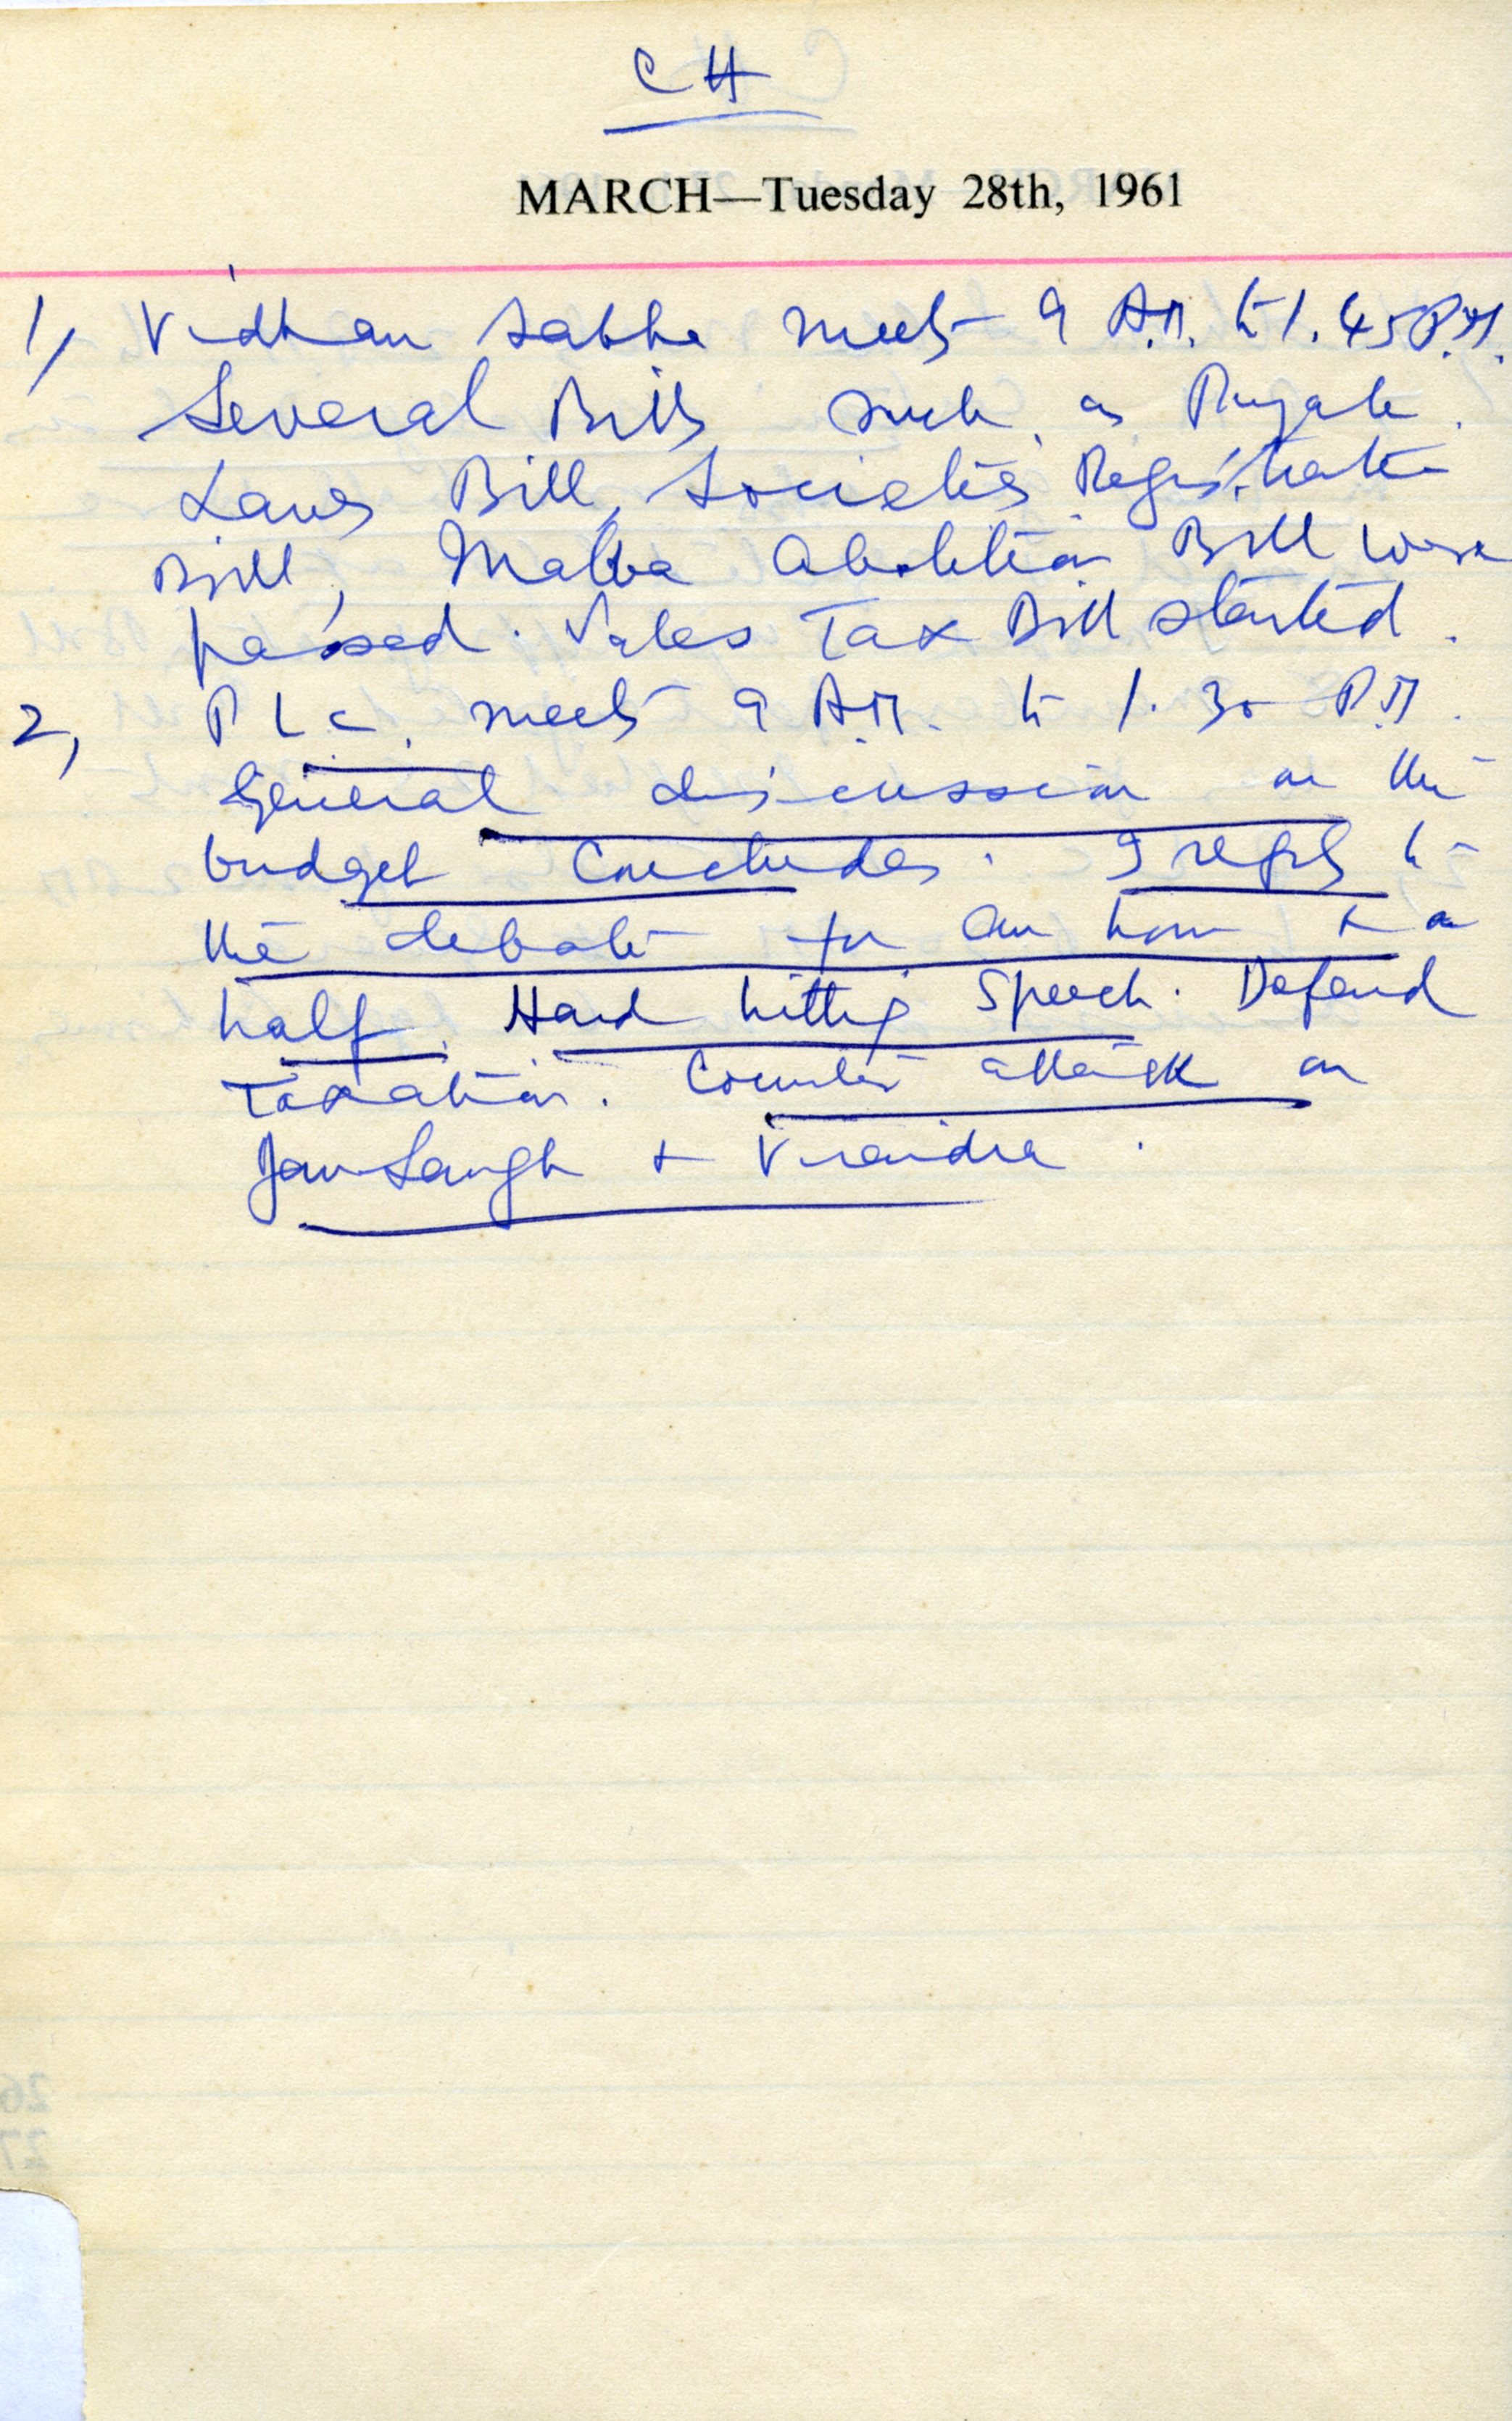 CH
MARCH—Tuesday 28th, 1961
1, Vidhan Sabha meets 9 A.M. to 1.45 P.M.
Several Bills such as Punjab
Laws Bill, Societies Registration
Bill, Malba Abolition Bill were
passed. Sales Tax Bill started.
2, P L C. meets 9 A.M. to 1.30 P.M.
General discussion on the
budget concludes. I reply to
the debate for an hour & a
half. Hard hitting speech. Defend
taxation. Counter attack on
Jan Sangh & Virendra.